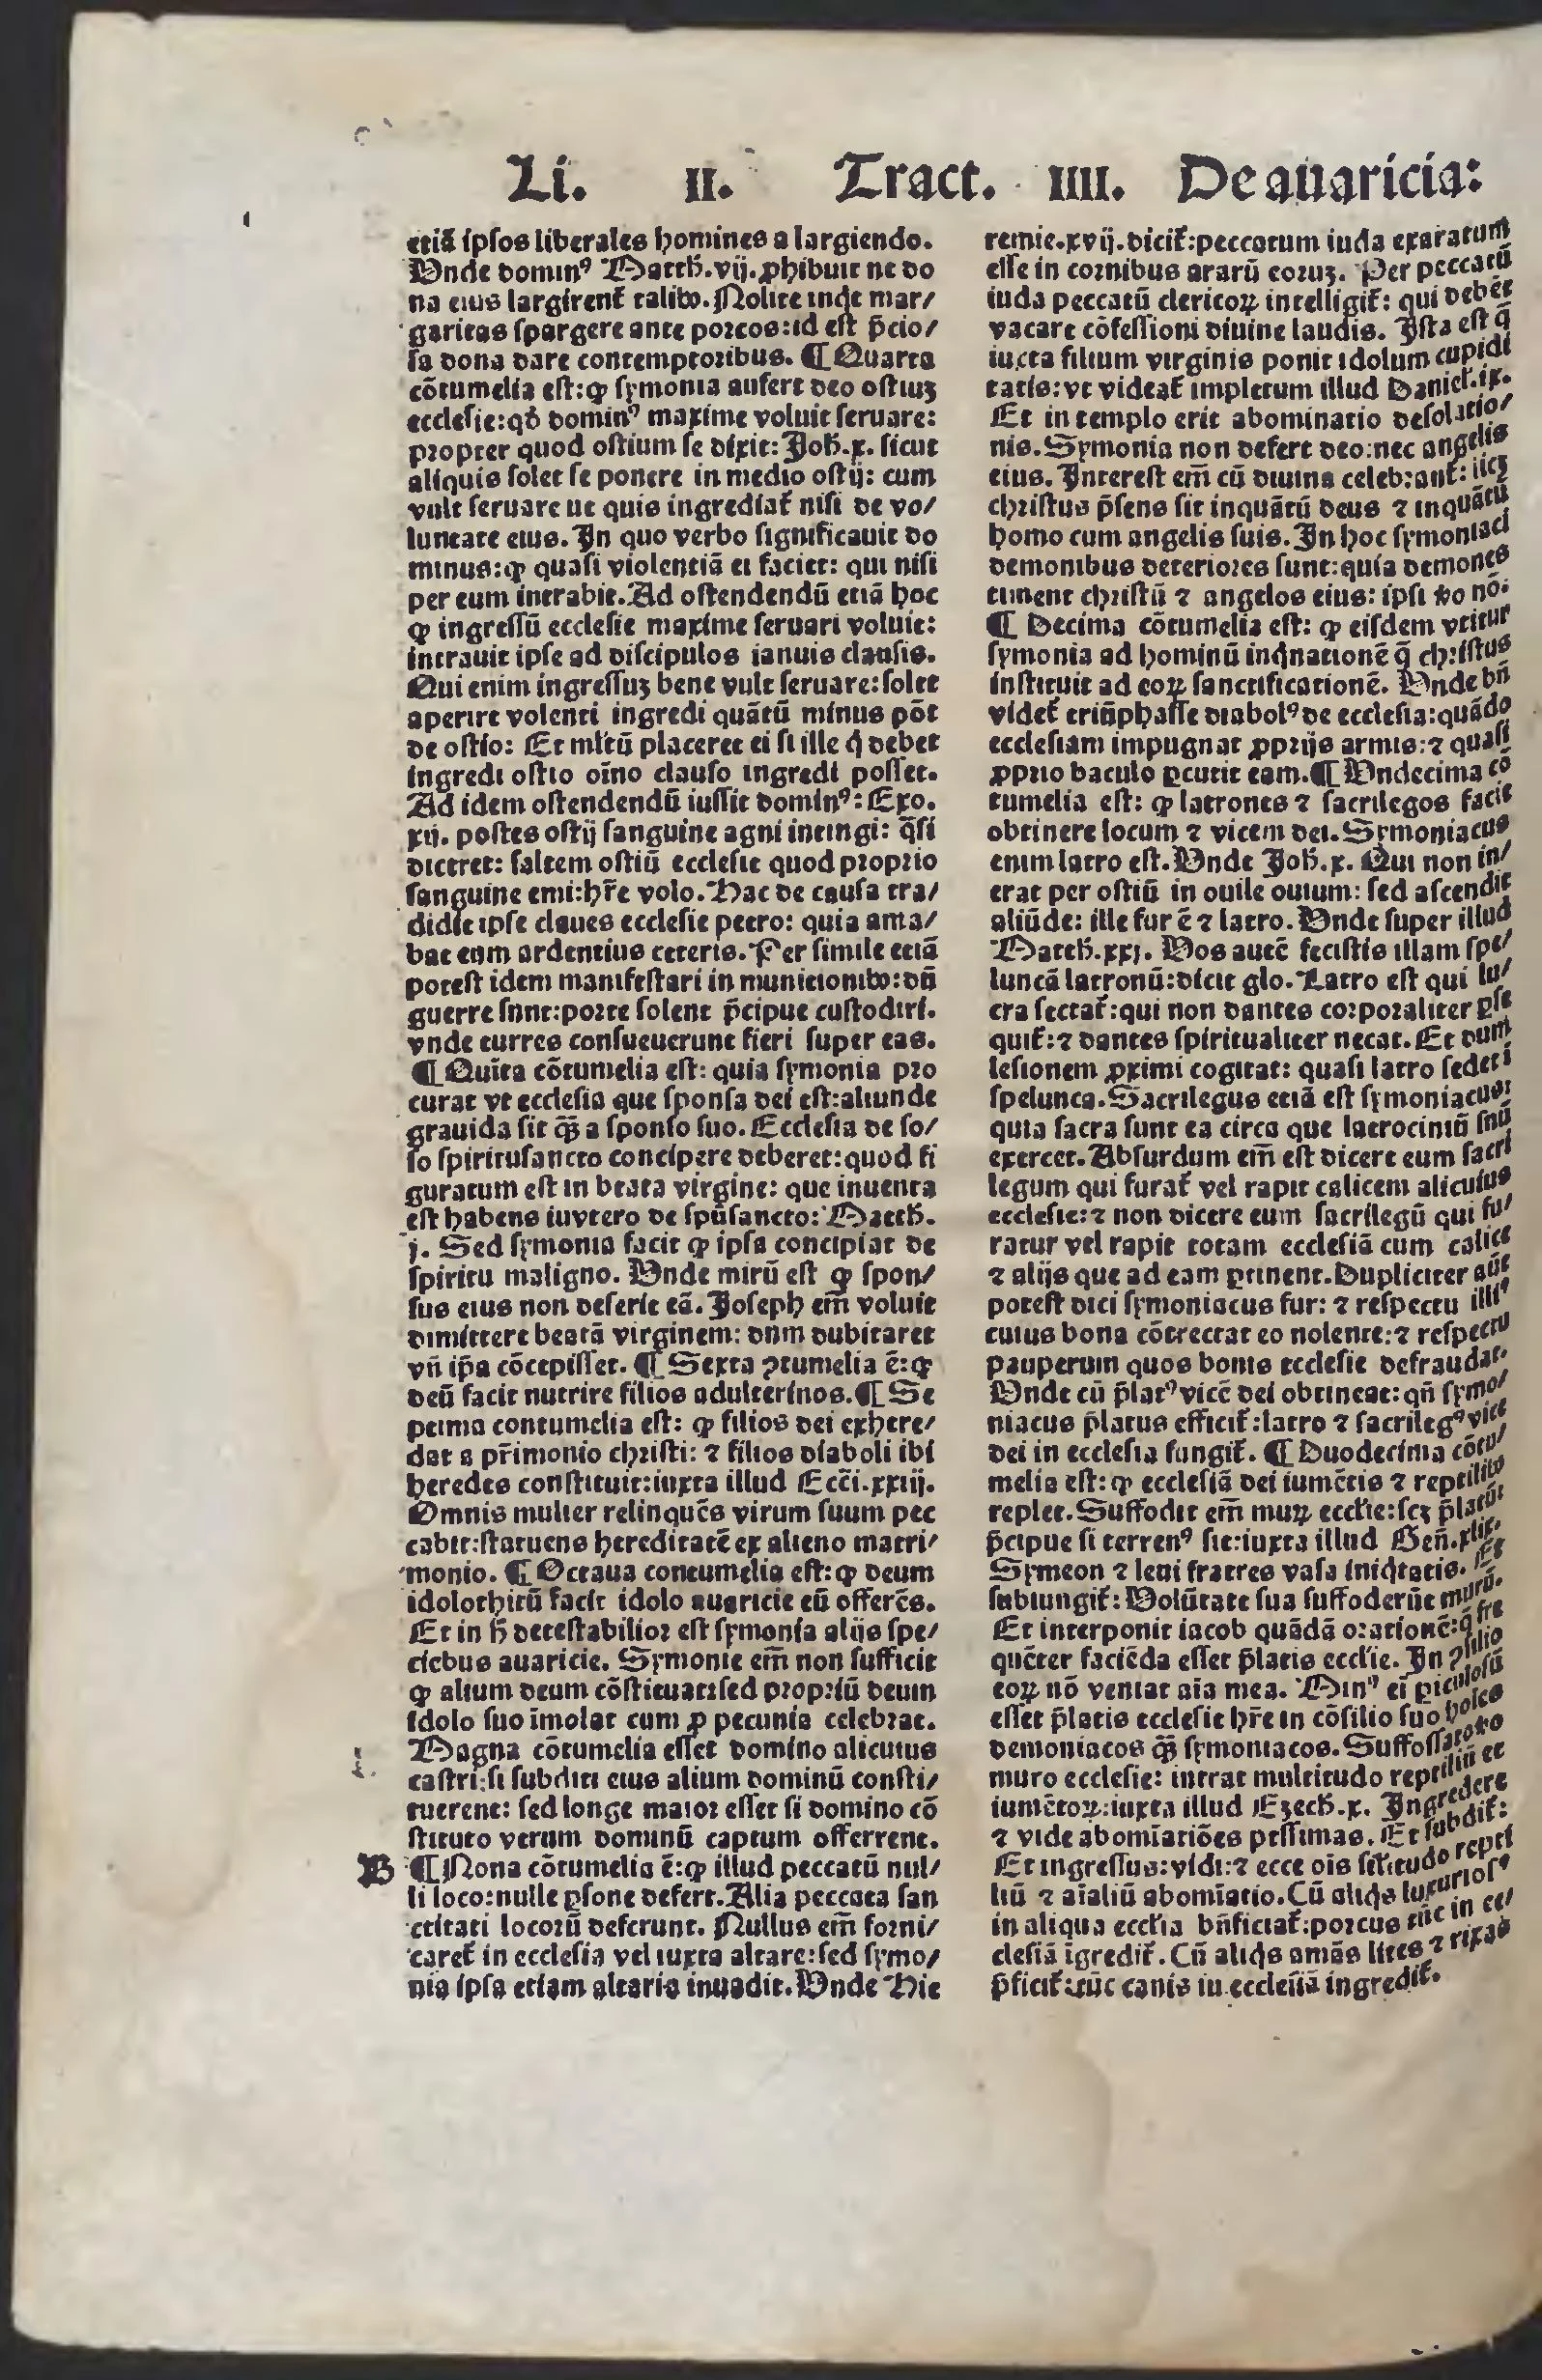 Li. II. Tract. IIII. De auaricia:
etiã ipſos liberales homines a largiendo.
Vnde domin⁹ Matth̃.vij. ꝓhibuit ne do
na eius largirent᷑ talibꝰ. Nolite inqͥt mar/
garitas ſpargere ante porcos: id eſt p̃cio/
ſa dona dare contemptoribus. ¶ Quarta
cõtumelia eſt: ꝙ ſymonia aufert deo oſtiuꝫ
eccleſie: qd̕ domin⁹ maxime voluit ſeruare:
propter quod oſtium ſe dixit: Joh̃.x. ſicut
aliquis ſolet ſe ponere in medio oſtij: cum
vult ſeruare ne quis ingrediat᷑ niſi de vo/
luntate eius. In quo verbo ſignificauit do
minus: ꝙ quaſi violentiã ei faciet: qui niſi
per eum intrabit. Ad oſtendendũ etiã hoc
ꝙ ingreſſũ eccleſie maxime ſeruari voluit:
intrauit ipſe ad diſcipulos ianuis clauſis.
Qui enim ingreſſuꝫ bene vult ſeruare: ſolet
aperire volenti ingredi quãtũ minus põt
de oſtio: Et ml̕tũ placeret ei ſi ille qͥ debet
ingredi oſtio oĩno clauſo ingredi poſſet.
Ad idem oſtendendũ iuſſit domin⁹: Exo.
xij. poſtes oſtij ſanguine agni intingi: q̃ſi
diceret: ſaltem oſtiũ eccleſie quod proprio
ſanguine emi: hr̃e volo. Hac de cauſa tra/
didit ipſe claues eccleſie petro: quia ama/
bat eum ardentius ceteris. Per ſimile etiã
poteſt idem manifeſtari in municionibꝰ: dũ
guerre ſunt: porte ſolent p̃cipue cuſtodiri.
vnde turres conſueuerunt fieri ſuper eas.
¶ Quĩta cõtumelia eſt: quia ſymonia pro
curat vt eccleſia que ſponſa dei eſt: aliunde
grauida ſit q̃ꝫ a ſponſo ſuo. Eccleſia de ſo/
lo ſpirituſancto concipere deberet: quod fi
guratum eſt in beata virgine: que inuenta
eſt habens in vtero de ſpũſancto: Matth̃.
j. Sed ſymonia facit ꝙ ipſa concipiat de
ſpiritu maligno. Vnde mirũ eſt ꝙ ſpon/
ſus eius non deſerit eã. Joſeph em̃ voluit
dimittere beatã virginem: dum dubitaret
vñ ip̃a cõcepiſſet. ¶ Sexta ꝯtumelia ẽ: ꝙ
deũ facit nutrire filios adulterinos. ¶ Se
ptima contumelia eſt: ꝙ filios dei exhere/
dat a pr̃imonio chriſti: ⁊ filios diaboli ibi
heredes conſtituit: iuxta illud Ecc̃i.xxiij.
Omnis mulier relinquẽs virum ſuum pec
cabit: ſtatuens hereditatẽ ex alieno matri/
monio. ¶ Octaua contumelia eſt: ꝙ deum
idolothitũ facit idolo auaricie eũ offerẽs.
Et in h̃ deteſtabilior eſt ſymonia alijs ſpe/
ciebus auaricie. Symonie em̃ non ſufficit
ꝙ alium deum cõſtituat: ſed propriũ deum
idolo ſuo ĩmolat cum ꝓ pecunia celebrat.
Magna cõtumelia eſſet domino alicuius
caſtri: ſi ſubditi eius alium dominũ conſti/
tuerent: ſed longe maior eſſet ſi domino cõ
ſtituto verum dominũ captum offerrent.
B ¶ Nona cõtumelia ẽ: ꝙ illud peccatũ nul/
li loco: nulle ꝑſone defert. Alia peccata ſan
ctitati locorũ deferunt. Nullus em̃ forni/
caret᷑ in eccleſia vel iuxta altare: ſed ſymo/
nia ipſa etiam altaria inuadit. Vnde Hie
remie.xvij. dicit᷑: peccatum iuda exaratum
eſſe in cornibus ararũ eoruꝫ. Per peccatũ
iuda peccatũ clericoꝝ intelligit᷑: qui debẽt
vacare cõfeſſioni diuine laudis. Iſta eſt q̃
iuxta filium virginis ponit idolum cupidi
tatis: vt videat᷑ impletum illud Daniel̕.ix.
Et in templo erit abominatio deſolatio/
nis. Symonia non defert deo: nec angelis
eius. Intereſt em̃ cũ diuina celebrant᷑: licꝫ
chriſtus p̃ſens ſit inquãtũ deus ⁊ inquãtũ
homo cum angelis ſuis. In hoc ſymoniaci
demonibus deteriores ſunt: quia demones
timent chriſtũ ⁊ angelos eius: ipſi ꝟo nõ.
¶ Decima cõtumelia eſt: ꝙ eiſdem vtitur
ſymonia ad hominũ inqͥnationẽ q̃ chriſtus
inſtituit ad eoꝝ ſanctificationẽ. Vnde bñ
videt᷑ triũphaſſe diabol⁹ de eccleſia: quãdo
eccleſiam impugnat ꝓprijs armis: ⁊ quaſi
ꝓprio baculo ꝑcutit eam. ¶ Vndecima cõ
tumelia eſt: ꝙ latrones ⁊ ſacrilegos facit
obtinere locum ⁊ vicem dei. Symoniacus
enim latro eſt. Vnde Joh̃.x. Qui non in/
trat per oſtiũ in ouile ouium: ſed aſcendit
aliũde: ille fur ẽ ⁊ latro. Vnde ſuper illud
Matth̃.xxj. Vos autẽ feciſtis illam ſpe/
luncã latronũ: dicit glo. Latro eſt qui lu/
cra ſectat᷑: qui non dantes corporaliter ꝑſe
quit᷑: ⁊ dantes ſpiritualiter necat. Et dum
leſionem ꝓximi cogitat: quaſi latro ſedet ĩ
ſpelunca. Sacrilegus etiã eſt ſymoniacus:
quia ſacra ſunt ea circa que latrociniũ ſuũ
exercet. Abſurdum em̃ eſt dicere eum ſacri
legum qui furat᷑ vel rapit calicem alicuius
eccleſie: ⁊ non dicere eum ſacrilegũ qui fu/
ratur vel rapit totam eccleſiã cum calice
⁊ alijs que ad eam ꝑtinent. Dupliciter aũt
poteſt dici ſymoniacus fur: ⁊ reſpectu illi⁹
cuius bona cõtrectat eo nolente: ⁊ reſpectu
pauperum quos bonis eccleſie defraudat.
Vnde cũ p̃lat⁹ vicẽ dei obtineat: qñ ſymo/
niacus p̃latus efficit᷑: latro ⁊ ſacrileg⁹ vice
dei in eccleſia fungit᷑. ¶ Duodecima cõtu/
melia eſt: ꝙ eccleſiã dei iumẽtis ⁊ reptilibꝰ
replet. Suffodit em̃ muꝝ eccl̕ie: ſcꝫ p̃latũ:
p̃cipue ſi terren⁹ ſit: iuxta illud Geñ.xlix.
Symeon ⁊ leui fratres vaſa iniqͥtatis. Et
ſubiungit᷑: Volũtate ſua ſuffoderũt murũ.
Et interponit iacob quãdã orationẽ: q̃ fre
quẽter faciẽda eſſet p̃latis eccl̕ie. In ꝯſilio
eoꝝ nõ veniat aĩa mea. Min⁹ eĩ ꝑiculoſũ
eſſet p̃latis eccleſie hr̃e in cõſilio ſuo hoĩes
demoniacos q̃ꝫ ſymoniacos. Suffoſſato ꝟo
muro eccleſie: intrat multitudo reptiliũ et
iumẽtoꝝ: iuxta illud Ezech̃.x. Ingredere
⁊ vide abomĩatiões peſſimas. Et ſubdit᷑:
Et ingreſſus: vidi: ⁊ ecce oĩs ſil̕itudo repti
liũ ⁊ aĩaliũ abomĩatio. Cũ aliqͥs luxurioſ⁹
in aliqua eccl̕ia bñficiat᷑: porcus tũc in ec/
cleſiã ĩgredit᷑. Cũ aliqͥs amãs lites ⁊ rixas
p̃ficit᷑: tũc canis in eccleſiã ingredit᷑.